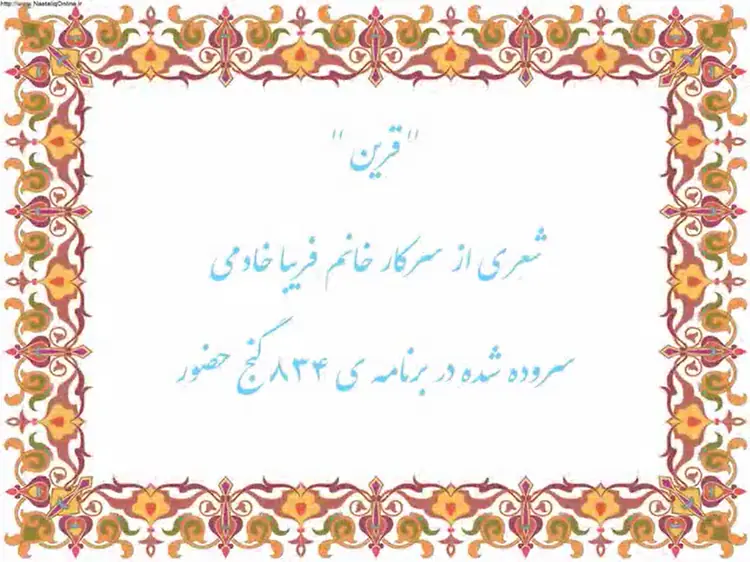 http://www.NastaliqOnline.ir
"قرین"
شعری از سرکار خانم فریبا خادمی
سروده شده در برنامه ی ۸۳۴ گنج حضور